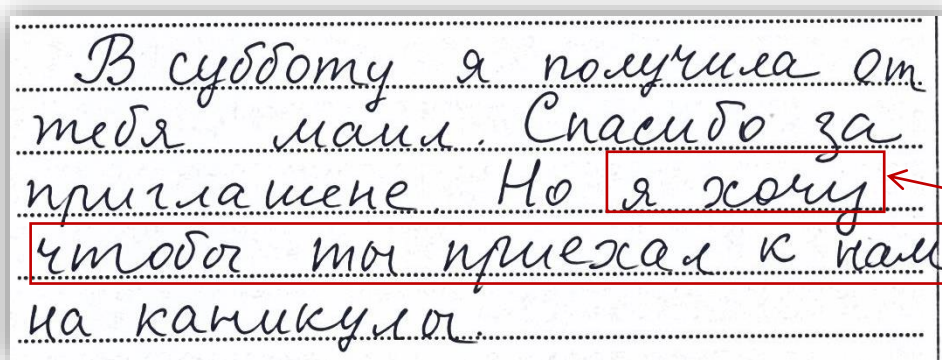 В субботу я получила от
тебя маил. Спасибо за
приглашене. Но я хочу
чтобы ты приехал к нам
на каникулы.